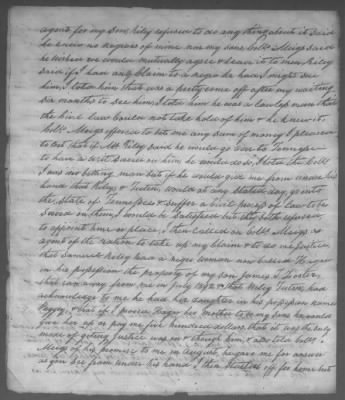 agent for my Son Riley refused to do any thing about it said
he knew no negroes of mine nor my sons Colo. Meigs said
he wished we would mutually agree & leave it to men, Riley
said if I had any claim to a negro he had, I might sue
him, I told him that was a pretty come off after my waiting
six months to see him, I told him he was a lawless man that
the civil law could not take hold of him & he knew it
Colo. Meigs offered to bet me any sum of money I pleased
to bet that if Mr. Riley said he would go over to Tennessee
to have a writ served on him he would do so, I told the Colo.
I was no betting man but if he would give me from under his
hand that Riley & Tuten, would at any stated day go into
the State of Tennessee & suffer a civil process of law to be
served on them, I would be satisfied but they both refused
to appoint time or place, I then called on Colo. Meigs as
agent of the nation to take up my claim & to do me justice
that Samuel Riley had a negro woman now called
in his possession the property of my son James
that ran away from me in July and that Tuten had
acknowledged to me he had her daughter in his possession named
Peggy, & that if I proved to be her mother to my sons he would
give her up or pay me five hundred dollars, that it was the only
mode of getting justice was through him, & also told Colo.
Meigs of his promise to me in August, he gave me for answer
as you see from under his hand, I then started off for home but